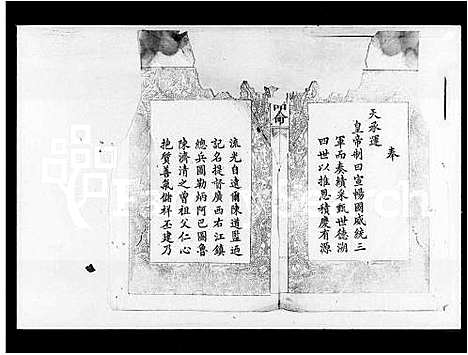 奉
天承運
皇帝制曰宣暢國威統三
軍而奏績采甄世德溯
四世以推恩積慶有源
流光自遠爾陳道監迺
記名提督廣西右江鎮
總兵圖勒炳阿巴圖魯
陳濟清之曾祖父仁心
抱質善氣儲祥丕建乃